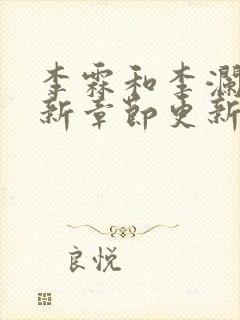 李霖和李澜
新章节更新
良悦